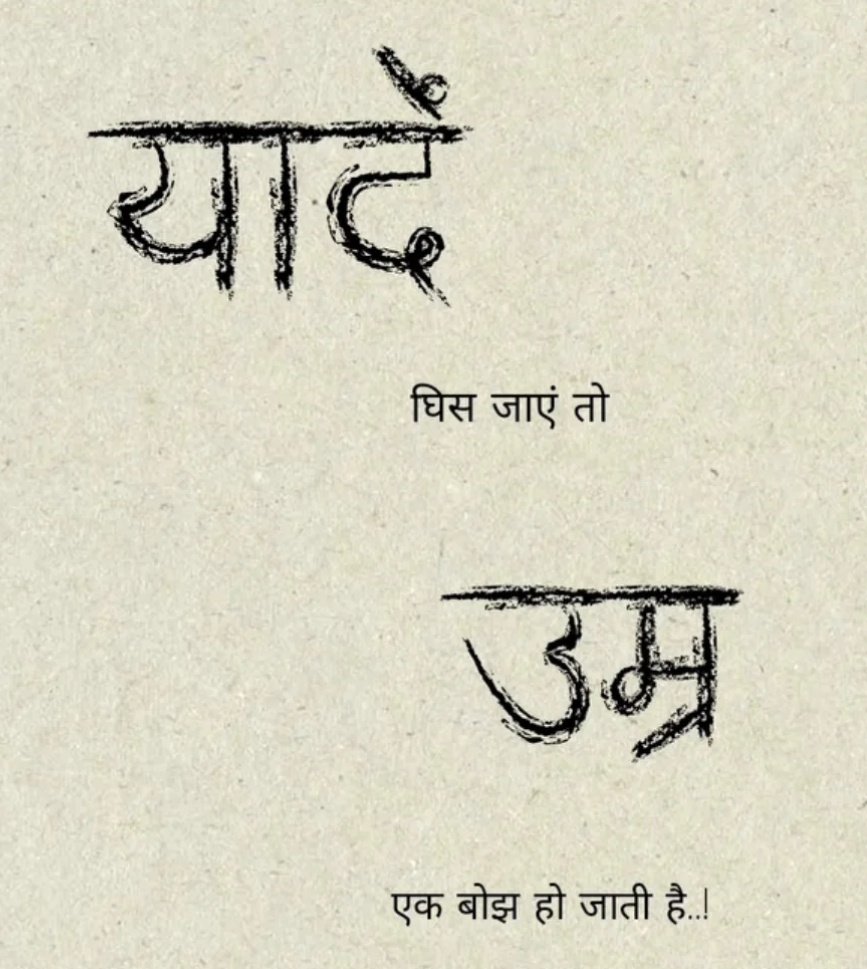 यादें
घिस जाएं तो
उम्र
एक बोझ हो जाती है..!